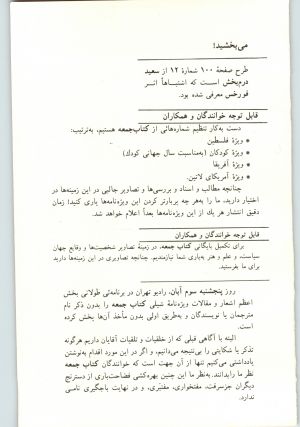 می‌بخشید!
طرح صفحهٔ ۱۰۰ شمارهٔ ۱۲ از سعید
درم‌بخش است که اشتباهاً اثر
فورخس معرفی شده بود.
قابل توجه خوانندگان و همکاران
دست به‌کار تنظیم شماره‌هائی از کتاب‌جمعه هستیم، به‌ترتیب:
• ویژهٔ فلسطین
• ویژهٔ کودکان (به‌مناسبت سال جهانی کودك)
• ویژهٔ آفریقا
• ویژهٔ آمریکای لاتین.
چنانچه مطالب و اسناد و بررسی‌ها و تصاویر جالبی در این زمینه‌ها در
اختیار دارید، ما را به‌هر چه پربارتر کردن این ویژه‌نامه‌ها یاری کنید! زمان
دقیق انتشار هر یك از این ویژه‌نامه‌ها بعداً اعلام خواهد شد.
قابل توجه خوانندگان و همکاران
برای تکمیل بایگانی کتاب جمعه، در زمینهٔ تصاویر شخصیت‌ها و وقایع جهان
سیاست، و علم و هنر به‌یاری شما نیازمندیم. چنانچه تصاویری در این زمینه‌ها دارید
برای ما بفرستید.
روز پنجشنبه سوم آبان، رادیو تهران در برنامه‌ئی طولانی بخش
اعظم اشعار و مقالات ویژه‌نامهٔ شیلی کتاب جمعه را بدون ذکر نام
مترجمان یا نویسندگان و به‌طریق اولی بدون مأخذ آن‌ها پخش کرده
است.
البته با آگاهی قبلی که از خلقیات و تلقیات آقایان داریم هرگونه
تذکر یا شکایتی را بی‌نتیجه می‌دانیم، و اگر در این مورد اقدام به‌نوشتن
یادداشتی می‌کنیم تنها از آن جهت است که خوانندگان کتاب جمعه از
نظر ما این چنین بهره‌کشی از دسترنج
دیگران جز سرقت، مفتخواری، و در نهایت باجگیری نامی
ندارد.